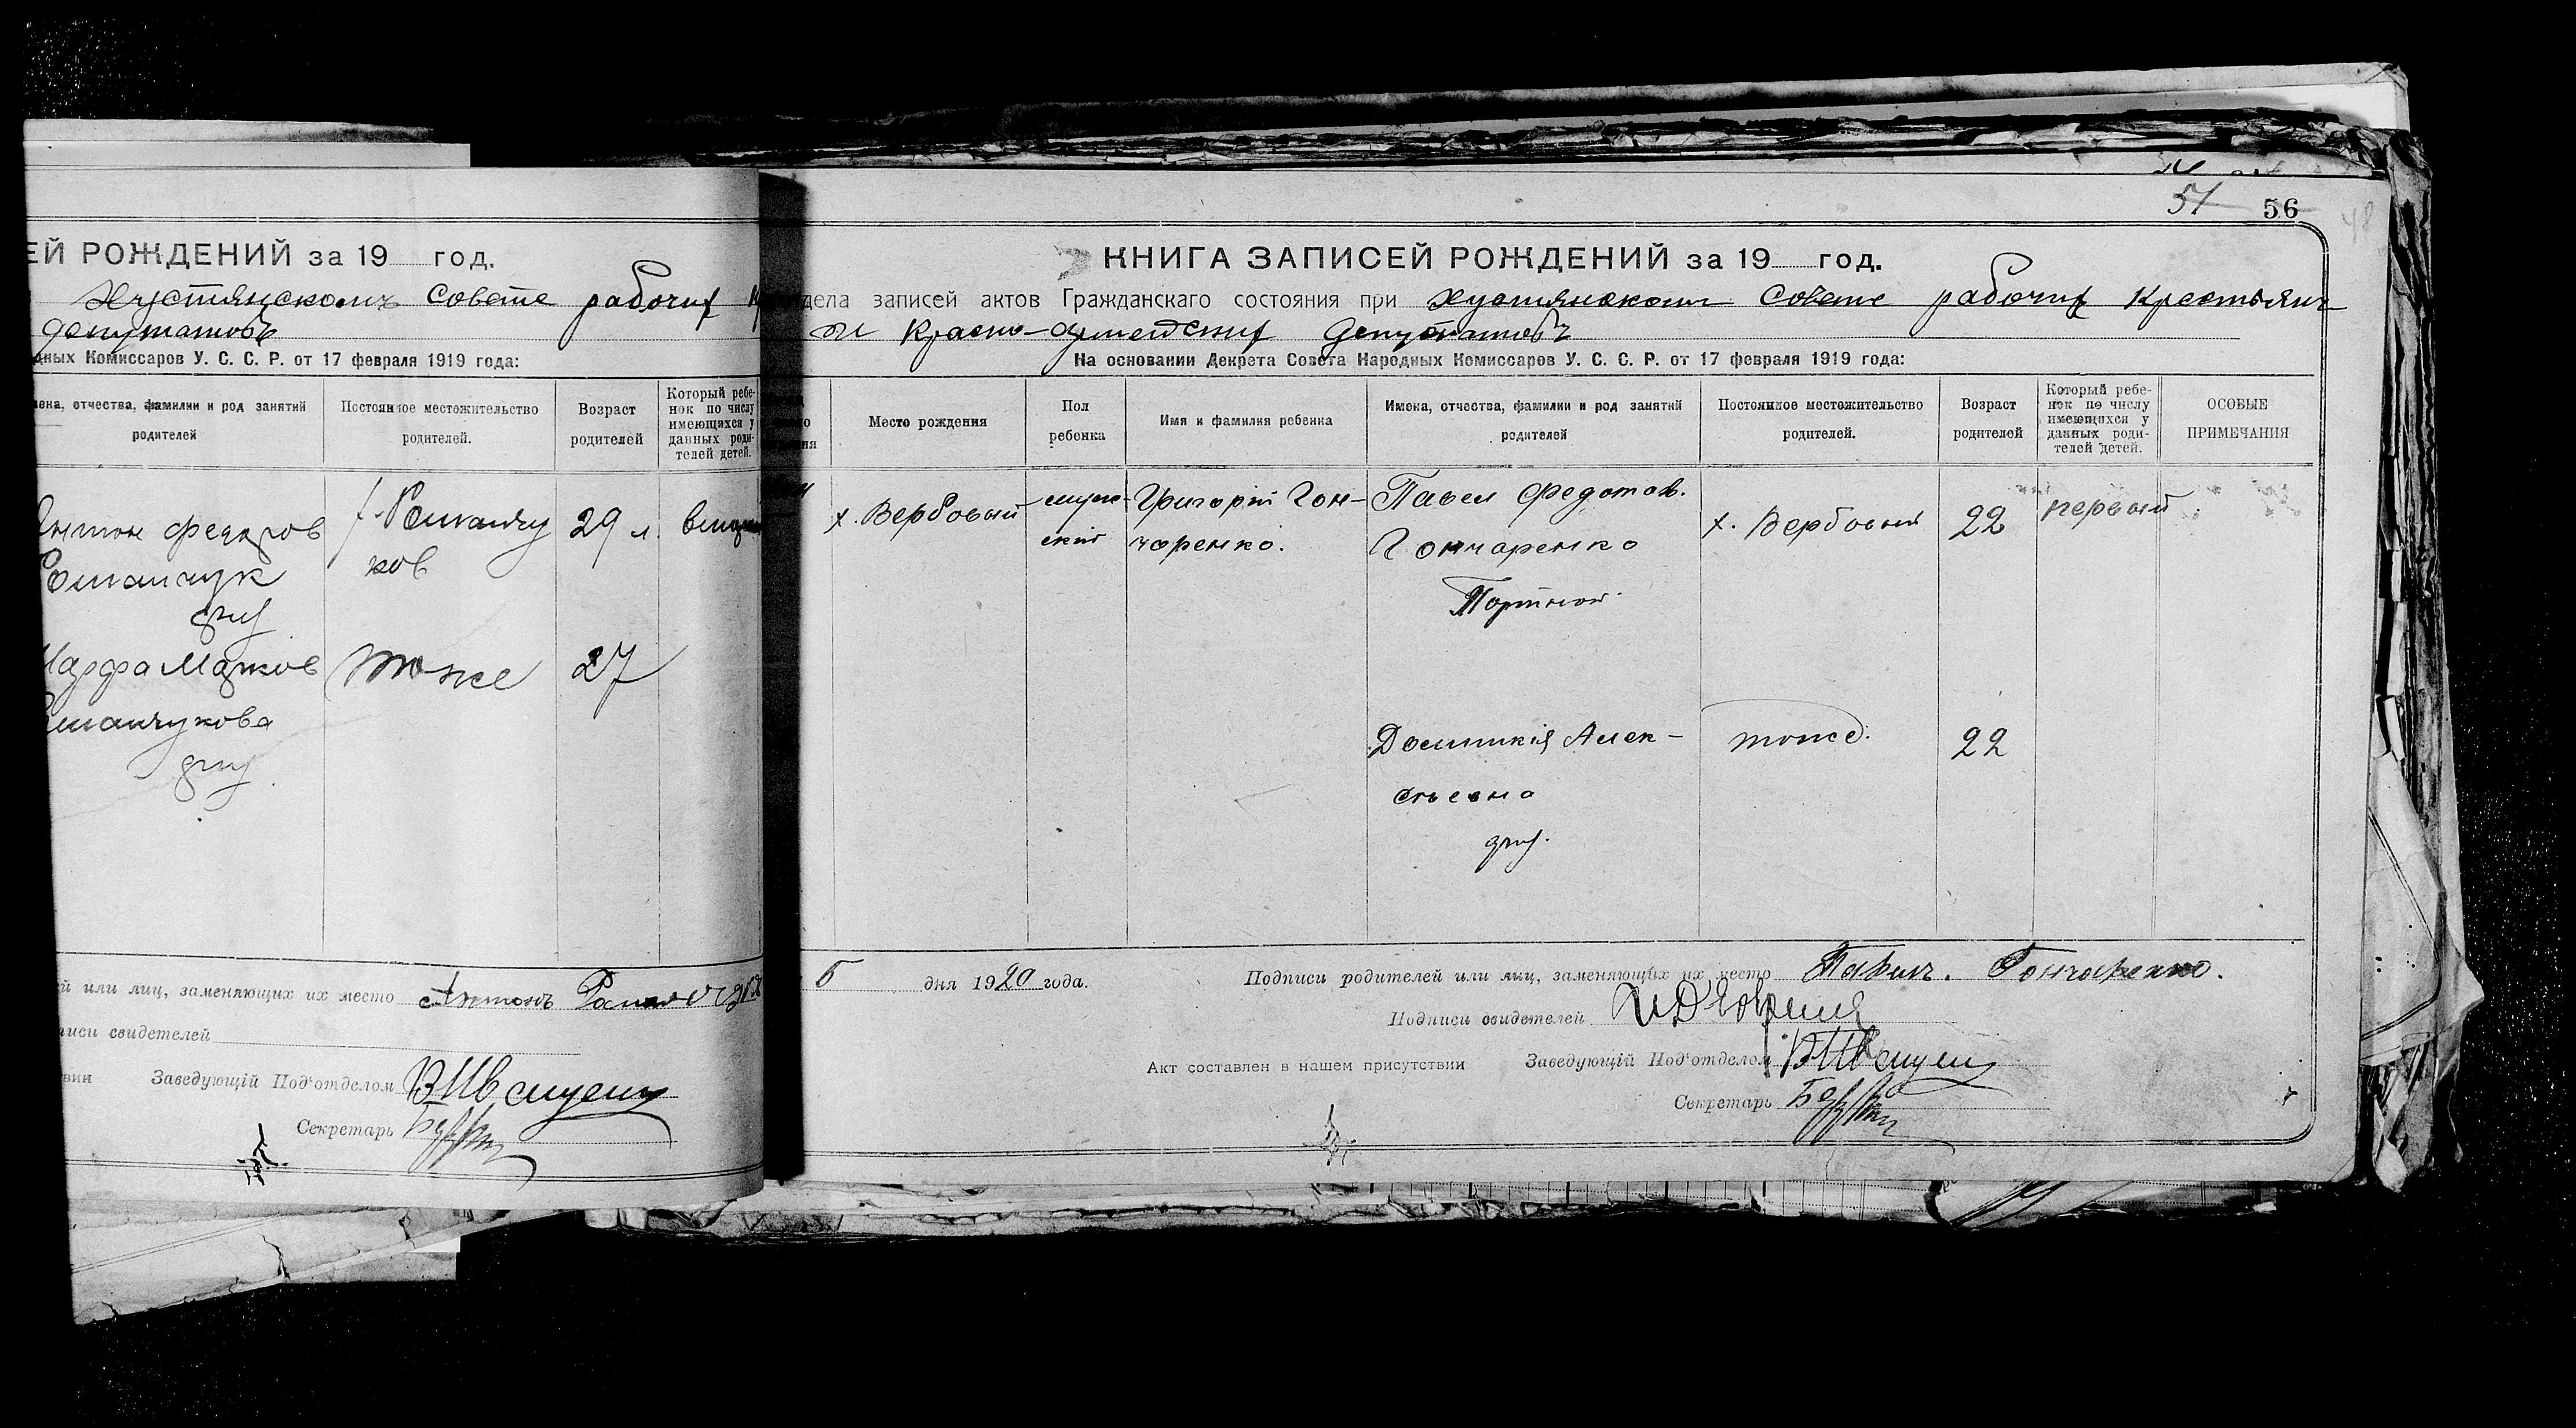 ЕЙ РОЖДЕНИЙ за 19 год.
Хустянскомъ совете рабочих
депутатовъ
дных Комиссаров У. С. С. Р. от 17 февраля 1919 года:
мена, отчества, фамилии и род занятий родителей
Постоянное местожительство родителей.
Возраст родителей
Который ребенок по числу имеющихся у данных родителей детей.
Антон Федоров
29 л.
ков
дму
Марфа Марков
тоже
27
дму
й или лиц, заменяющих их место Антонъ
писи свидетелей
вии Заведующій Под'отделом
Секретарь
51 56
48
КНИГА ЗАПИСЕЙ РОЖДЕНИЙ за 19 год.
дела записей актов Гражданскаго состояния при Хустянском Совете рабочих Крестьян
и Красно-армейских Депутатовъ
На основании Декрета Совета Народных Комиссаров У. С. С. Р. от 17 февраля 1919 года:
Место рождения
Пол ребенка
Имя и фамилия ребенка
Имена, отчества, фамилии и род занятий родителей
Постоянное местожительство родителей.
Возраст родителей
Который ребенок по числу имеющихся у данных родителей детей.
ОСОБЫЕ ПРИМЕЧАНИЯ
х. Вербовый
муж-
ский
Григорій Гон-
чаренко.
Павел Федотов.
Гончаренко
Портной
х. Вербовый
22
первый
Домникія Алек-
сеевна
дму.
тоже.
22
6 дня 1920 года.
Подписи родителей или лиц, заменяющих их место Павилъ. Гончаренко.
Подписи свидетелей
Акт составлен в нашем присутствии Заведующій Под'отделом
Секретарь